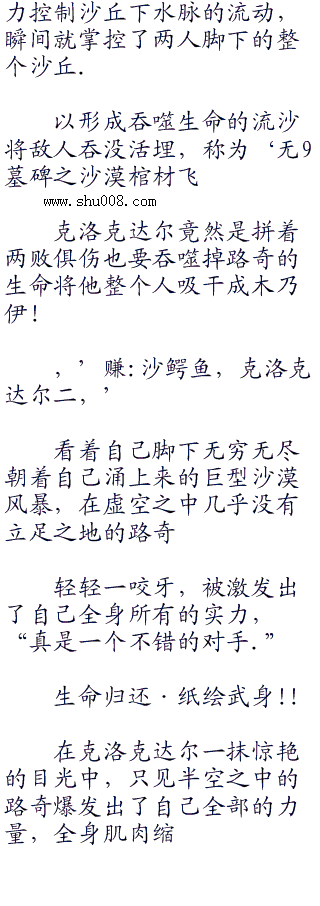 力控制沙丘下水脉的流动，
瞬间就掌控了两人脚下的整
个沙丘.
以形成吞噬生命的流沙
将敌人吞没活埋，称为‘无9
墓碑之沙漠棺材飞
www.shu008.com
克洛克达尔竟然是拼着
两败俱伤也要吞噬掉路奇的
生命将他整个人吸干成木乃
伊!
，’赚:沙鳄鱼，克洛克
达尔二，’
看着自己脚下无穷无尽
朝着自己涌上来的巨型沙漠
风暴，在虚空之中几乎没有
立足之地的路奇
轻轻一咬牙，被激发出
了自己全身所有的实力，
“真是一个不错的对手.”
生命归还·纸绘武身!!
在克洛克达尔一抹惊艳
的目光中，只见半空之中的
路奇爆发出了自己全部的力
量，全身肌肉缩